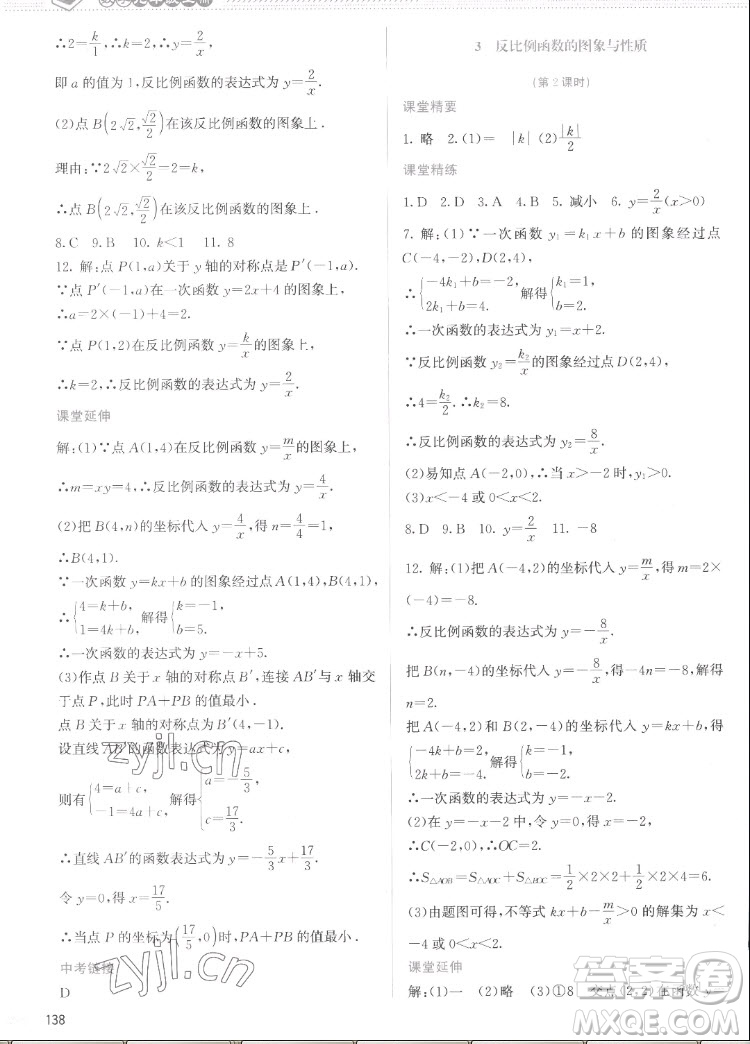 ∴2=k/1,∴k=2,
即a的值为1,反比例函数的表达式为y=2/x.
(2)点B(2√2,√2/2)在该反比例函数的图象上.
理由:∵2√2×√2/2=2=k,
∴点B(2√2,√2/2)在该反比例函数的图象上.
8.C 9.B 10.k<1 11.8
12.解:点P(1,a)关于y轴的对称点是P′(-1,a).
∵点P′(-1,a)在一次函数y=2x+4的图象上,
∴a=2×(-1)+4=2.
∵点P(1,2)在反比例函数y=k/x的图象上,
∴k=2,∴反比例函数的表达式为y=2/x.
课堂延伸
解:(1)∵点A(1,4)在反比例函数y=m/x的图象上,
∴m=xy=4,∴反比例函数的表达式为y=4/x.
(2)把B(4,n)的坐标代入y=4/x,得n=4/4=1,
∴B(4,1).
∵一次函数y=kx+b的图象经过点A(1,4),B(4,1),
∴{4=k+b, 1=4k+b, 解得{k=-1, b=5.
∴一次函数的表达式为y=-x+5.
(3)作点B关于x轴的对称点B′,连接AB′与x轴交
于点P,此时PA+PB的值最小.
点B关于x轴的对称点B′(4,-1).
设直线AB′的函数表达式为y=ax+c,
则有{4=a+c, -1=4a+c, 解得{a=-5/3, c=17/3.
∴直线AB′的函数表达式为y=-5/3x+17/3.
令y=0,得x=17/5.
∴当点P的坐标为(17/5,0)时,PA+PB的值最小.
中考链接
D
138
3 反比例函数的图象与性质
(第2课时)
课堂精要
1.略 2.(1)= |k| (2)|k|/2
课堂精练
1.D 2.D 3.A 4.B 5.减小 6.y=2/x(x>0)
7.解:(1)∵一次函数y₁=k₁x+b的图象经过点
C(-4,-2),D(2,4),
∴{-4k₁+b=-2, 2k₁+b=4. 解得{k₁=1, b=2.
∴一次函数的表达式为y₁=x+2.
∵反比例函数y₂=k₂/x的图象经过点D(2,4),
∴4=k₂/2.∴k₂=8.
∴反比例函数的表达式为y₂=8/x.
(2)易知点E(-2,0),∴当x>-2时,y₁>0.
(3)x<-4或0<x<2.
8.D 9.B 10.y=2/x 11.-8
12.解:(1)把A(-4,2)的坐标代入y=m/x,得m=2×
(-4)=-8.
∴反比例函数的表达式为y=-8/x.
把B(n,-4)的坐标代入y=-8/x,得-4n=-8,解得
n=2.
把A(-4,2)和B(2,-4)的坐标代入y=kx+b,得
{-4k+b=2, 2k+b=-4. 解得{k=-1, b=-2.
∴一次函数的表达式为y=-x-2.
(2)在y=-x-2中,令y=0,则x=-2,
∴C(-2,0).∴OC=2.
∴S△AOB=S△AOC+S△BOC=1/2×2×2+1/2×2×4=6.
(3)由题图可得,不等式kx+b-m/x>0的解集为x<
-4或0<x<2.
课堂延伸
解:(1)一 (2)略 (3)①8 交点(2,2)在函数y=
zyjl.cn
zyjl.cn
答案圈